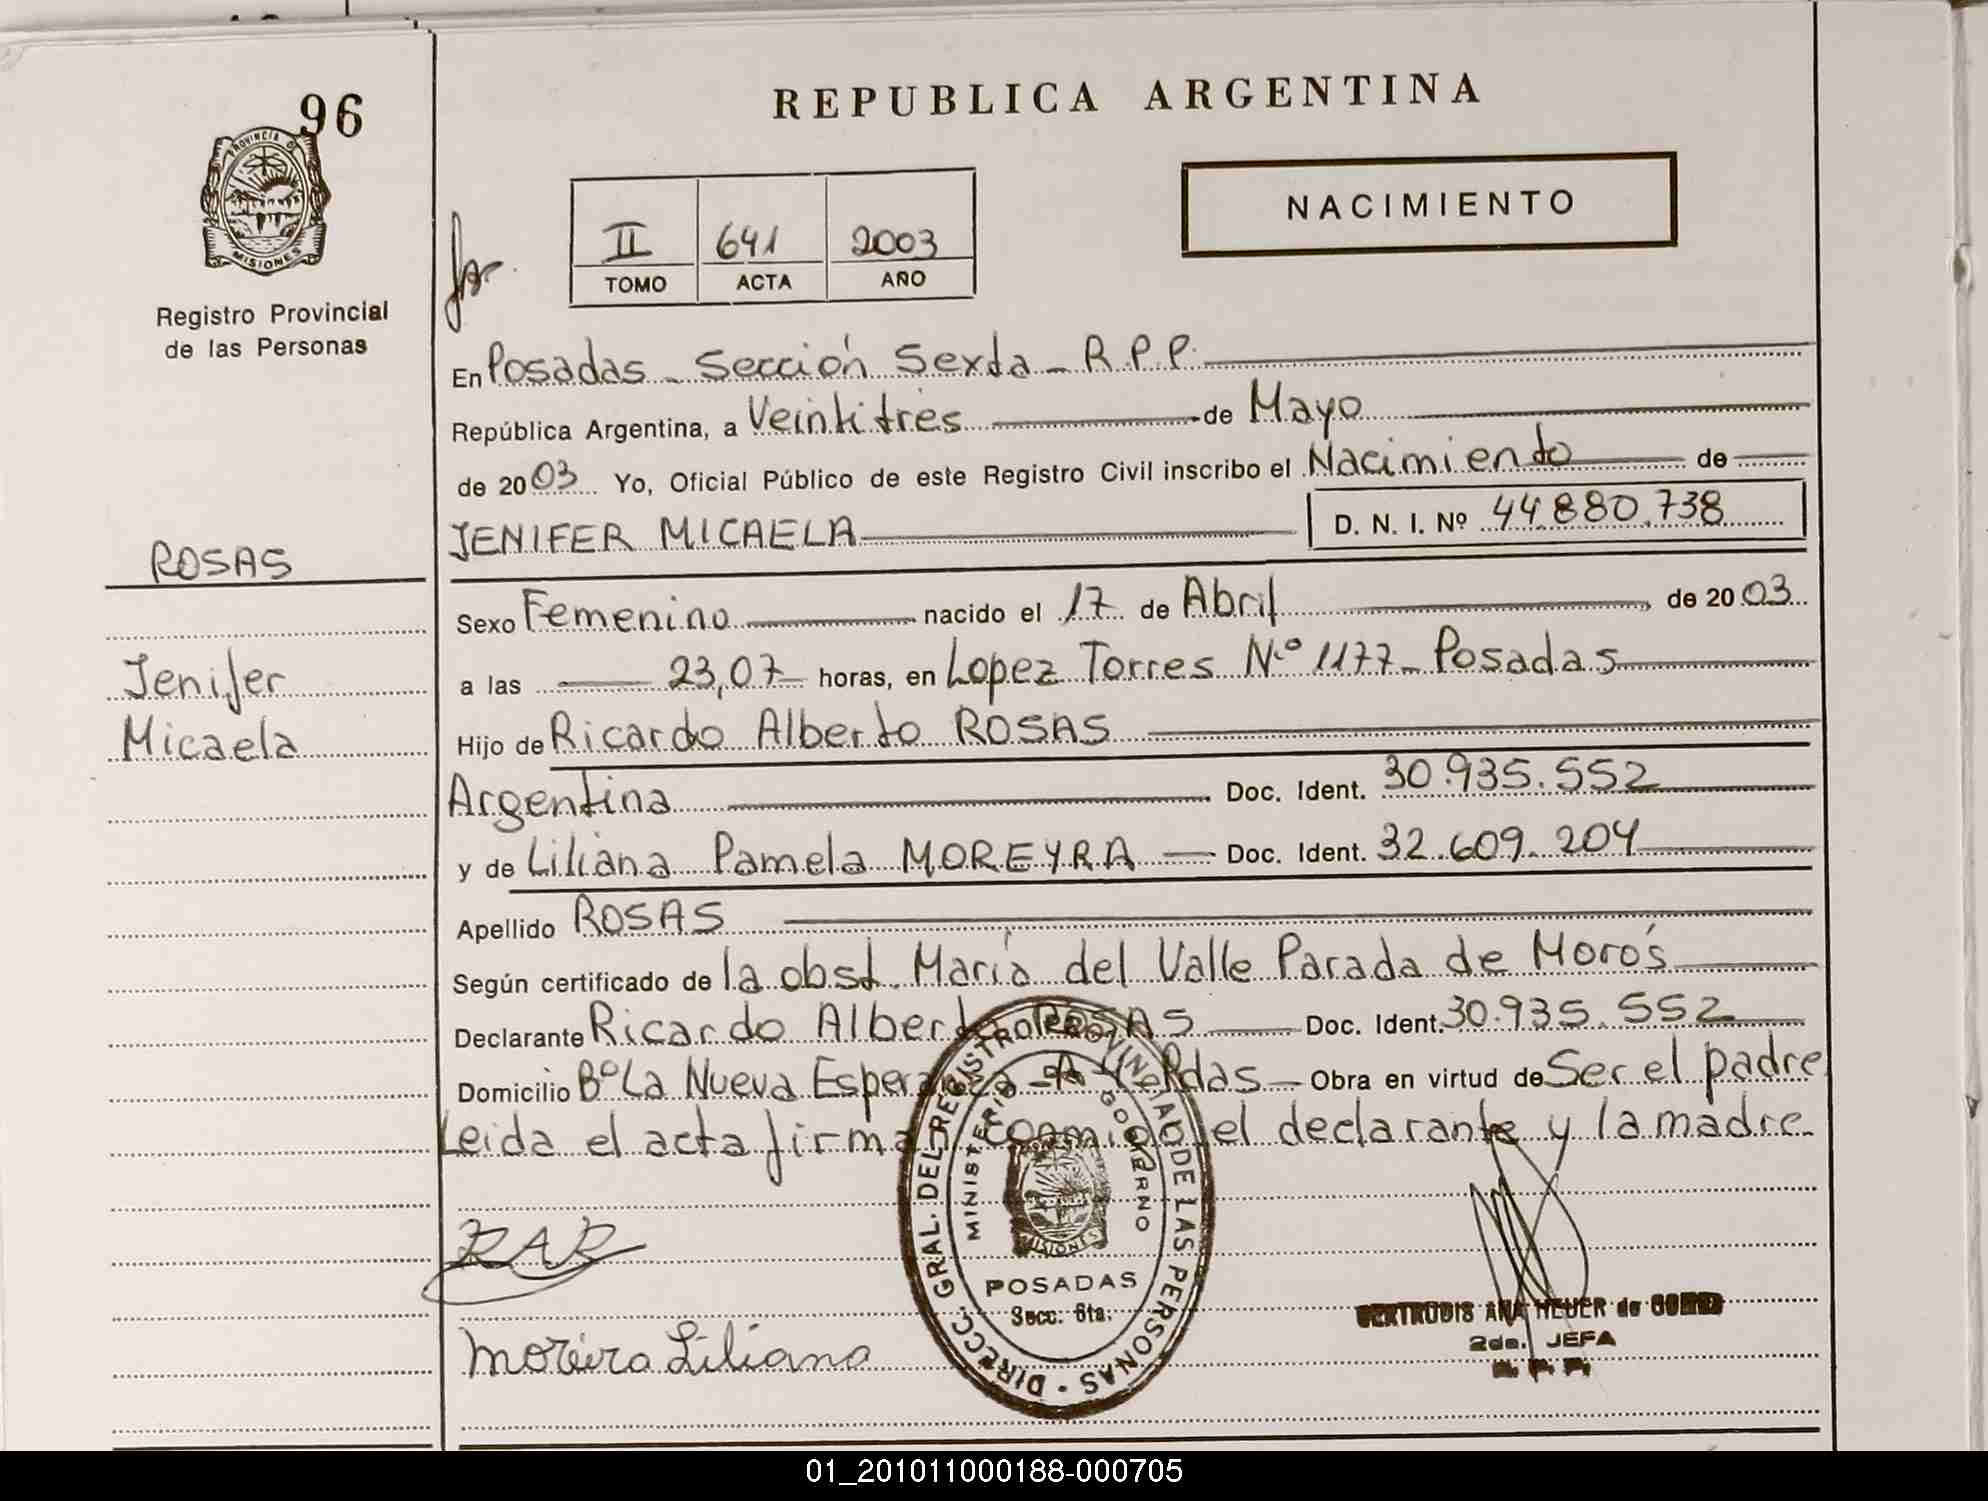 96
REPUBLICA ARGENTINA
PROVINCIA DE
MISIONES
Registro Provincial
de las Personas
II 641 2003
TOMO ACTA AÑO
NACIMIENTO
En Posadas - Sección Sexta - R.P.P.
República Argentina, a Veintitrés de Mayo
de 2003 Yo, Oficial Público de este Registro Civil inscribo el Nacimiento de
JENIFER MICAELA D. N. I. Nº 44.880.738
ROSAS
Jenifer
Micaela
Sexo Femenino nacido el 17 de Abril de 2003
a las 23,07 horas, en Lopez Torres Nº 1177 - Posadas
Hijo de Ricardo Alberto ROSAS
Argentina Doc. Ident. 30.935.552
y de Liliana Pamela MOREYRA Doc. Ident. 32.609.204
Apellido ROSAS
Según certificado de la obst. María del Valle Parada de Morós
Declarante Ricardo Alberto ROSAS Doc. Ident. 30.935.552
Domicilio Bº La Nueva Esperanza - Obra en virtud de Ser el padre
Leida el acta firma conmigo el declarante y la madre
RAR
Moreira Liliana
DIRECC. GRAL. DEL REGISTRO PROVINCIAL DE LAS PERSONAS
MINISTERIO GOBIERNO
MISIONES
POSADAS
Secc. 6ta.
GERTRUDIS ANA HEUER de
2da. JEFA
R. P. P.
01_201011000188-000705